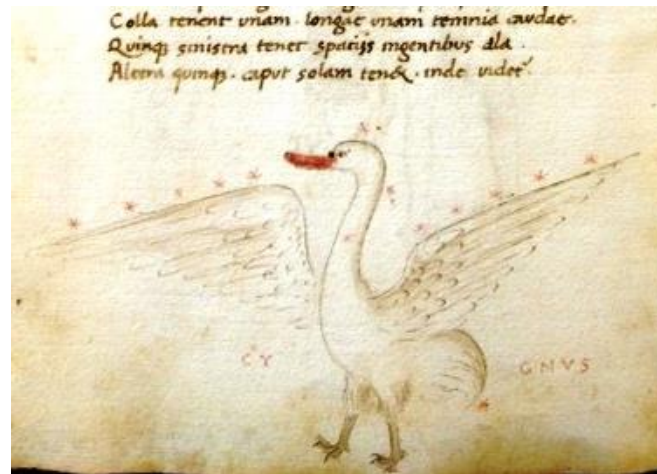 Colla tenent unam. longae unam temnia caudae.
Quinqȝ sinistra tenet spacijs ingentibus ala.
Altera quinqȝ. caput solam tenꝫ. inde videt᷑
CY GNVS